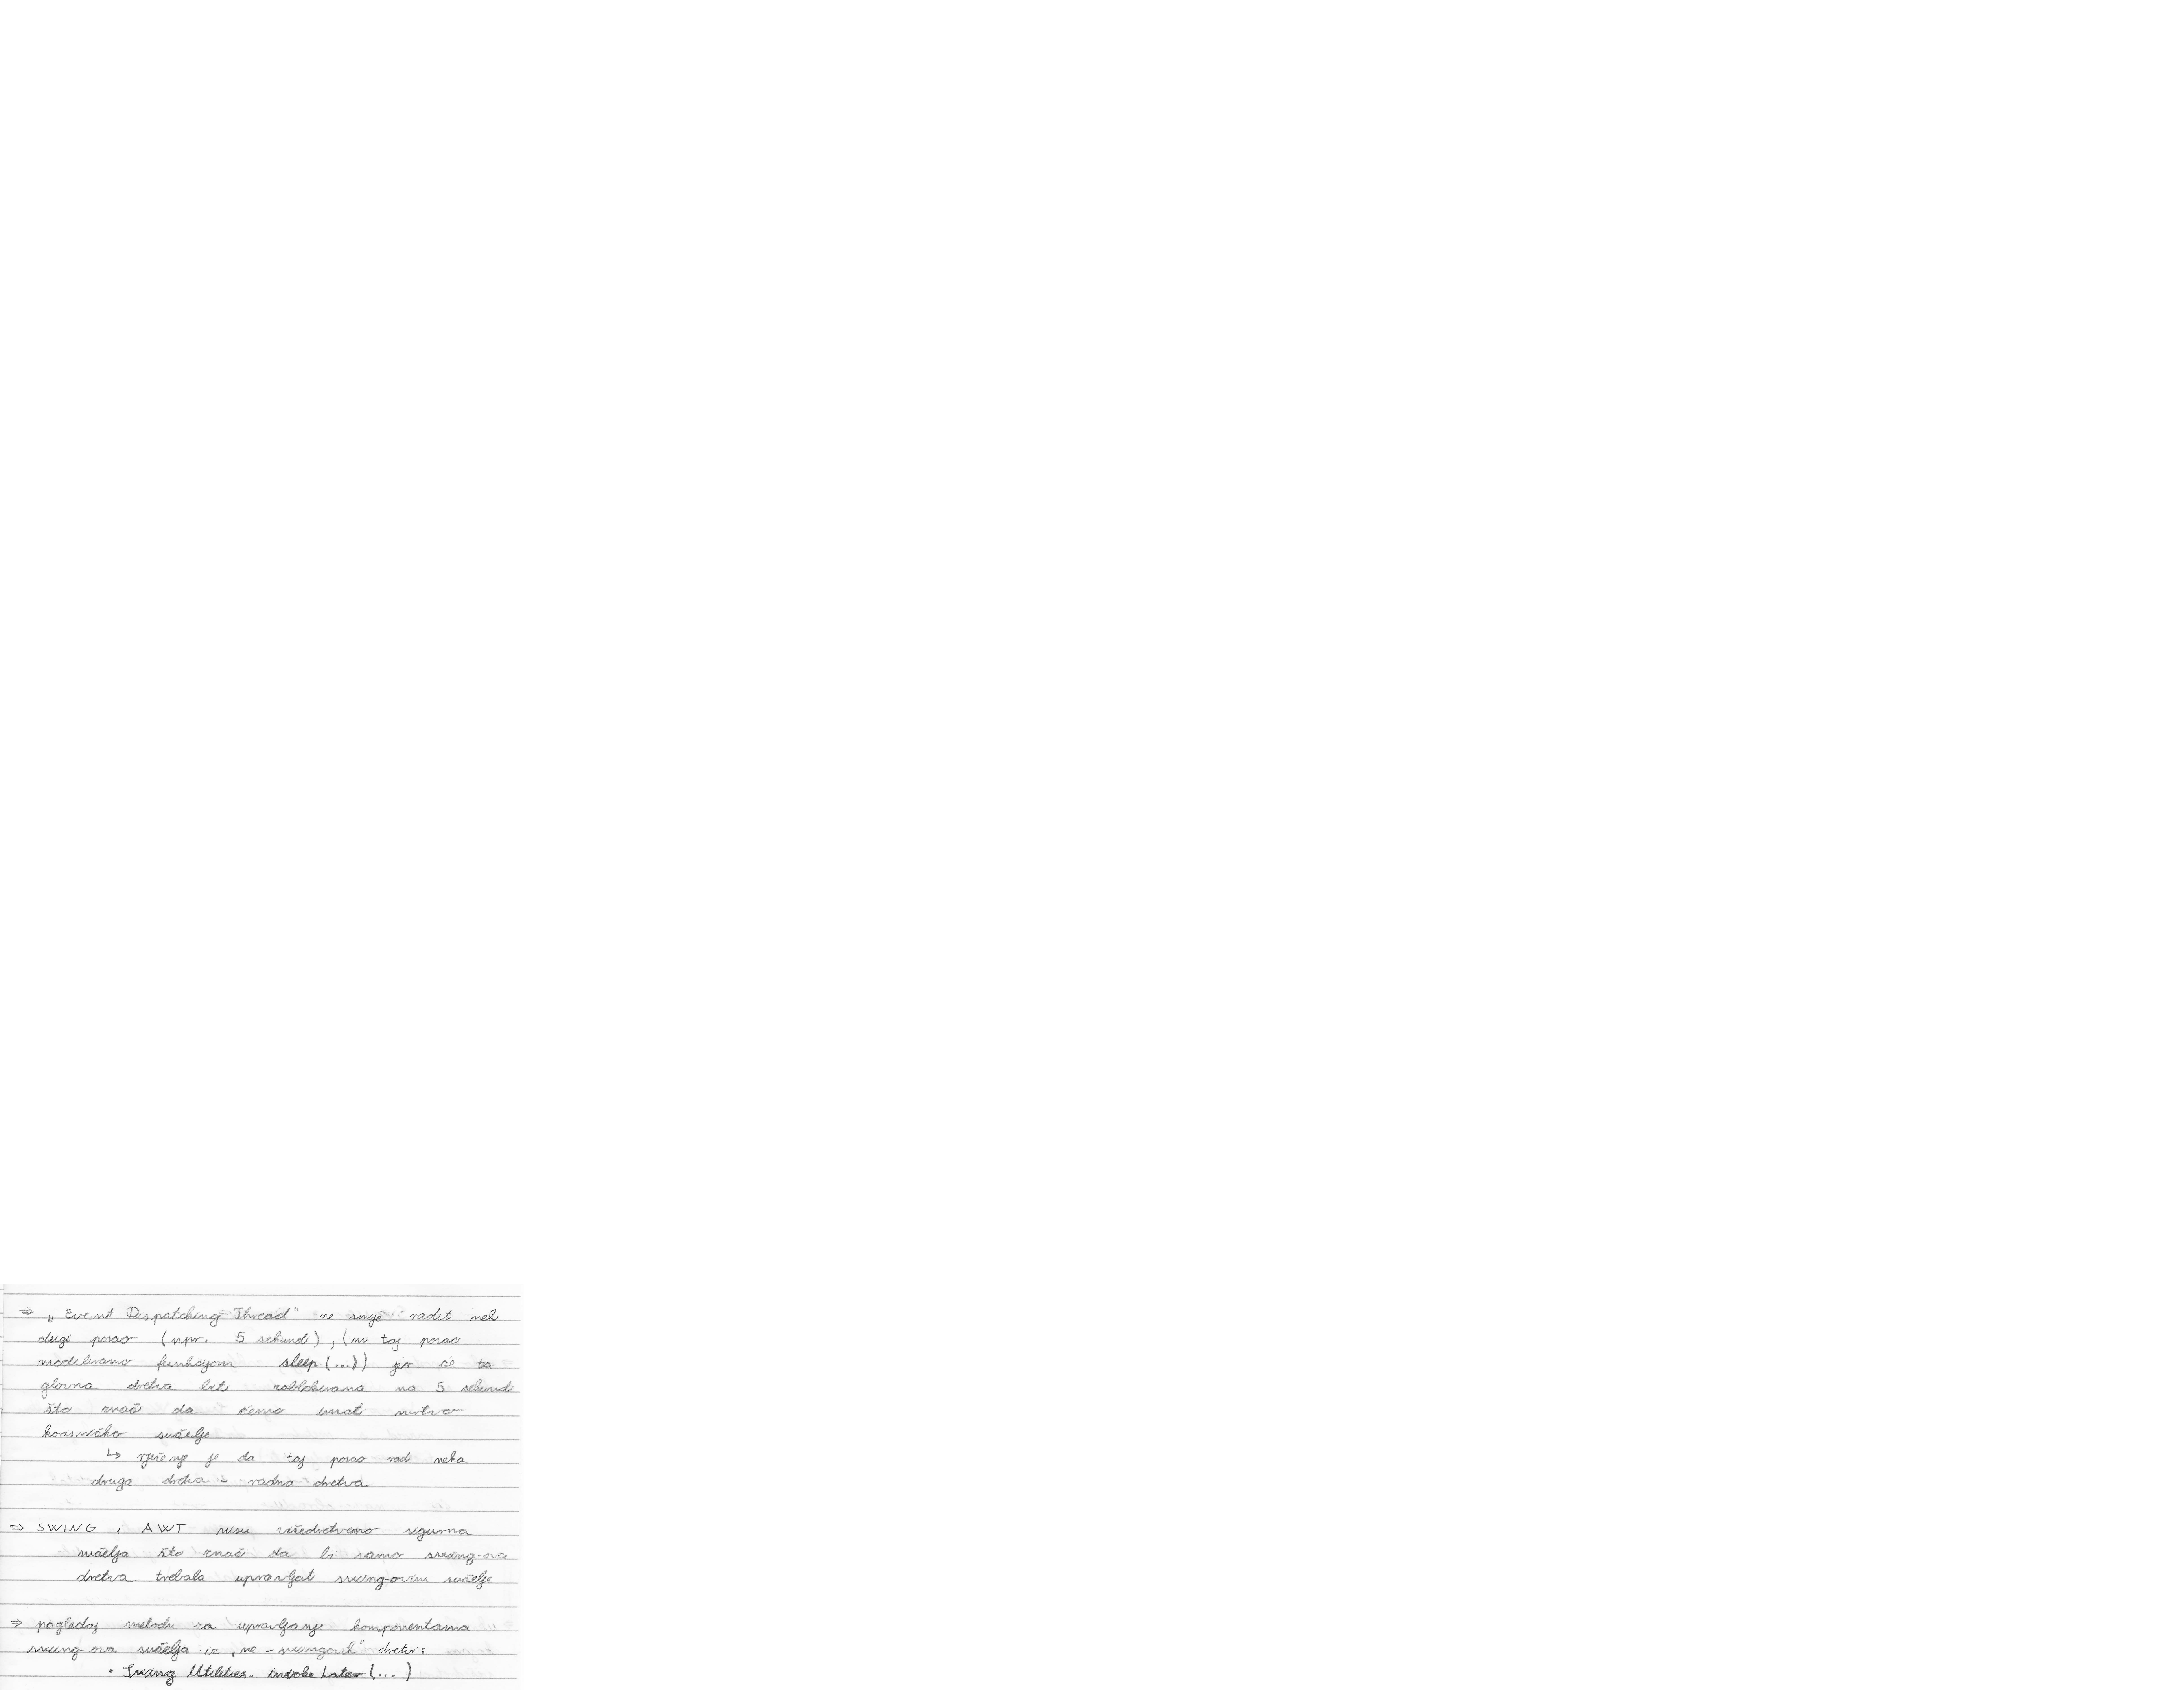 ⇒ „Event Dispatching Thread" ne smije radit neki
dugi posao (npr. 5 sekundi), (mi taj posao
modeliramo funkcijom sleep(...)) jer će ta
glavna dretva biti zablokirana na 5 sekundi
što znači da ćemo imati mrtvo
korisničko sučelje
↳ rješenje je da taj posao radi neka
druga dretva - radna dretva
⇒ SWING i AWT nisu višedretveno sigurna
sučelja što znači da bi samo swing-ova
dretva trebala upravljati swing-ovim sučelje
⇒ pogledaj metodu za upravljanje komponentama
swing-ova sučelja iz „ne-swingovih" dretvi:
• Swing Utilities. invoke Later (...)